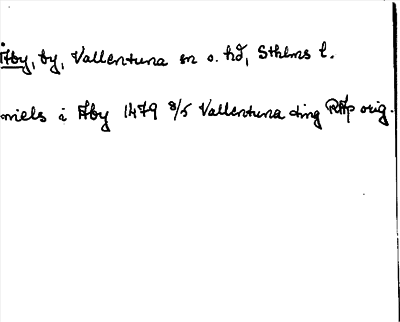 Åby, by, Vallentuna sn o. hd, Sthlms l.
niels i Åby 1479 8/5 Vallentuna ting RAp orig.